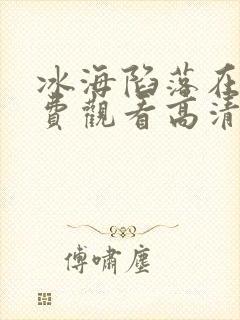 冰海陷落在
費觀看高清
傅嘯塵